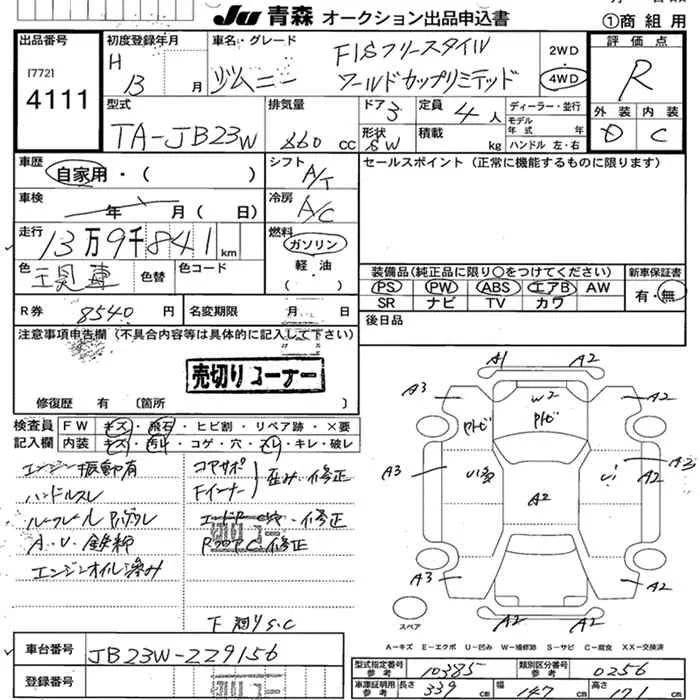 JU 青森 オークション出品申込書
①商組用
出品番号
[772]
4111
初度登録年月
H 13 月
車名・グレード
ジムニー
FISフリースタイル
ワールドカップリミテッド
2WD
4WD
評価点
R
外装 内装
D C
型式
TA-JB23W
排気量
660 cc
ドア 3
形状 SW
定員 4 人
積載 kg
ディーラー・並行
モデル年式 年
ハンドル 左・右
車歴
自家用・( )
シフト
A/T
セールスポイント (正常に機能するものに限ります)
車検
年 月 ( 日)
冷房
A/C
走行
13万9千841 km
燃料
ガソリン
軽油
( )
色
色替
色コード
装備品(純正品に限り○をつけてください)
新車保証書
PS PW ABS エアB AW
SR ナビ TV カワ
有・無
R券 8540 円
名変期限 月 日
後日品
注意事項申告欄 (不具合内容等は具体的に記入して下さい)
売切りコーナー
修復歴 有 〔箇所 〕
検査員記入欄
FW キズ・飛石・ヒビ割・リペア跡・×要
内装 キズ・汚れ・コゲ・穴・スレ・キレ・破レ
エンジン振動有
ハンドルスレ
A・U・
コアサポ
Fインナー
歪み・修正
修正
下廻りS.C
A1 A2
A3 W2 A2
A3 A2 A2 A3
A3 A2
A2 A2
スペア
A－キズ E－エクボ U－凹み W－補修跡 S－サビ C－腐食 XX－交換済
車台番号
JB23W-229156
登録番号
型式指定番号 参考 10385
類別区分番号 参考 0256
車庫証明用 参考 長さ 339 cm 幅 147 cm 高さ 171 cm